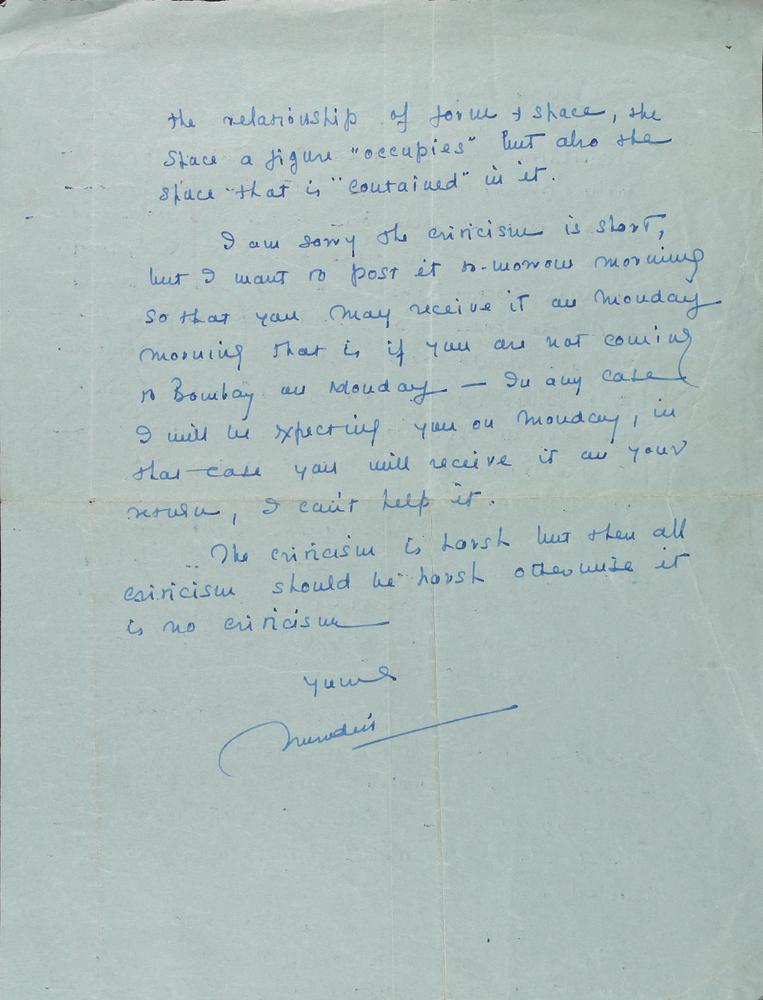 the relationship of form + space, the
space a figure "occupies" but also the
space that is "contained" in it.
I am sorry the criticism is short,
but I want to post it to-morrow morning
so that you may receive it on Monday
morning that is if you are not coming
to Bombay on Monday — In any case
I will be expecting you on Monday, in
that case you will receive it on your
return, I can't help it.
The criticism is harsh but then all
criticism should be harsh otherwise it
is no criticism
Yours